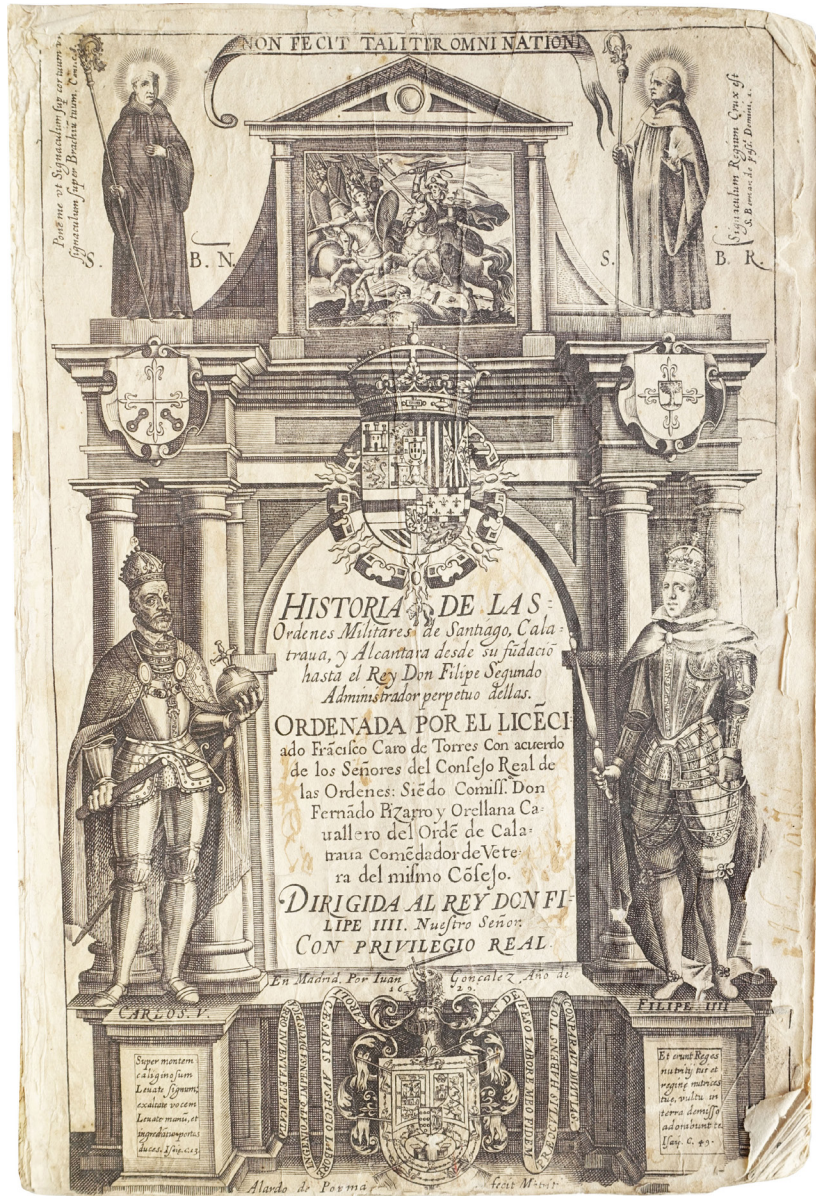 NON FECIT TALITER OMNI NATIONI
Pone me vt Signaculum sup cor tuum vt
signaculum super Brachiũ tuum. Cant. c.
S. B. N.
Signaculum Regium Crux est
S. B. R.
HISTORIA DE LAS
Ordenes Militares de Santiago, Cala-
traua, y Alcantara desde su fũdaciõ
hasta el Rey Don Filipe Segundo
Administrador perpetuo dellas.
ORDENADA POR EL LICẼCI
ado Frãcisco Caro de Torres Con acuerdo
de los Señores del Consejo Real de
las Ordenes: Siẽdo Comiss. Don
Fernãdo Pizarro y Orellana Ca-
uallero del Ordẽ de Cala-
traua Comẽdador de Vete-
ra del mismo Cõsejo.
DIRIGIDA AL REY DON FI-
LIPE IIII. Nuestro Señor.
CON PRIVILEGIO REAL
En Madrid. Por Iuan Gonçalez Año de
1629.
CARLOS. V.
FILIPE IIII
Super montem
caliginosum
Leuate signum;
exaltate vocem
Leuate manũ, et
ingrediãtur portas
duces. Isay. c. 13
Et erunt Reges
nutritij tui et
reginę nutrices
tuę, vultu in
terra demisso
adorabunt te.
Isay. C. 49.
CÆSARIS AVSPICIO LABORE
LABORE MEO FIDEM
HABENS
Alardo de Popma fecit Matrit